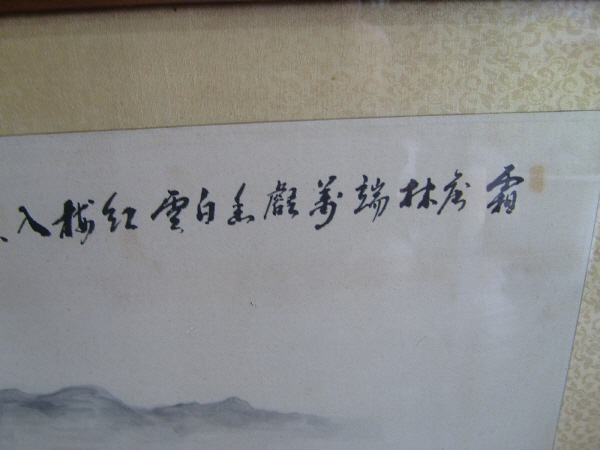 霜落林端萬壑幽白雲紅樹入